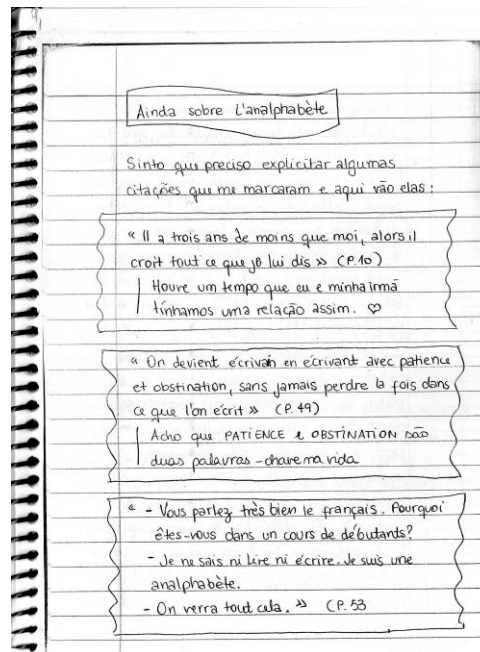 Ainda sobre L'analphabète
Sinto que preciso explicitar algumas
citações que me marcaram e aqui vão elas:
« Il a trois ans de moins que moi, alors il
croit tout ce que je lui dis » (P.10)
Houve um tempo que eu e minha irmã
tínhamos uma relação assim. ♡
« On devient écrivain en écrivant avec patience
et obstination, sans jamais perdre la fois dans
ce que l'on écrit » (P. 49)
Acho que PATIENCE e OBSTINATION são
duas palavras-chave na vida
« - Vous parlez très bien le français. Pourquoi
êtes-vous dans un cours de débutants?
- Je ne sais ni lire ni écrire. Je suis une
analphabète.
- On verra tout cela. » (P. 53